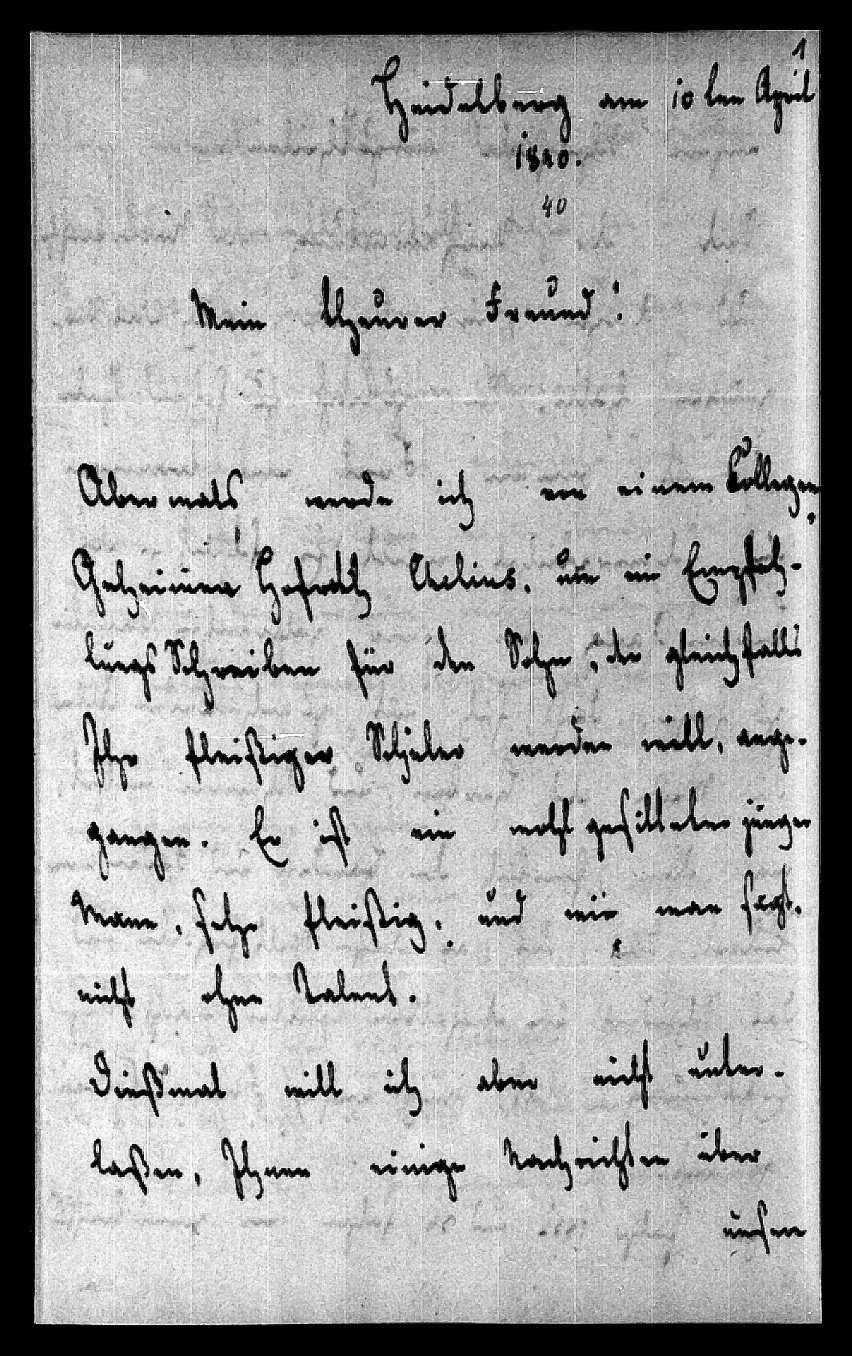 1
Heidelberg am 10ten April
1840.
40
Mein theurer Freund!
Abermals werde ich von einem Collegen,
Geheimen Hofrath Chelius, um ein Empfeh-
lungs Schreiben für den Sohn, der gleichfalls
Ihr fleißiger Schüler werden will, ange-
gangen. Er ist ein wohl gesitteter junger
Mann, sehr fleißig, und wie man sagt,
nicht ohne Talent.
Dießmal will ich aber nicht unter-
laßen, Ihnen einige Nachrichten über
unsern